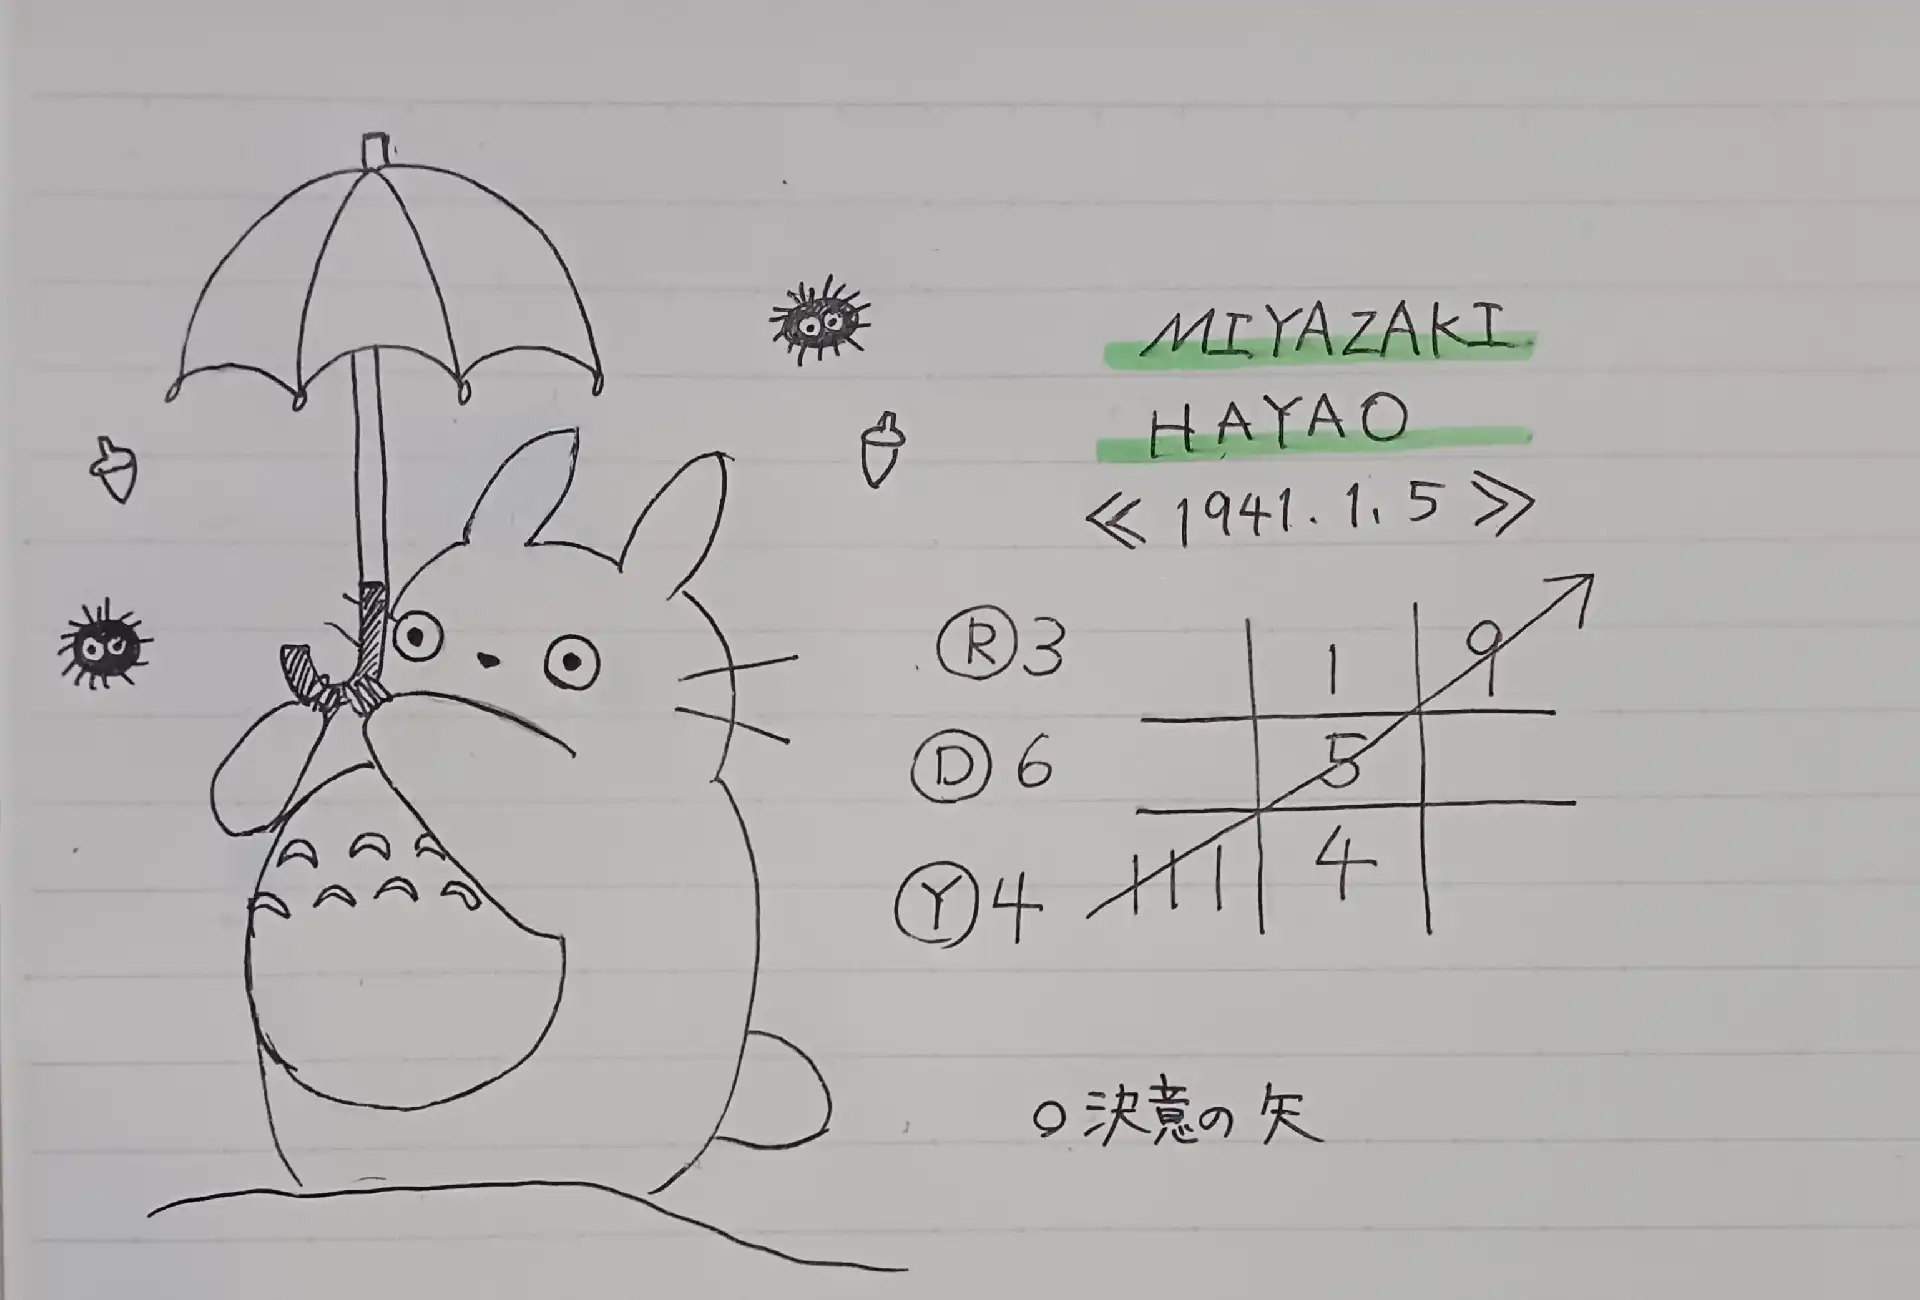 MIYAZAKI
HAYAO
≪ 1941.1.5 ≫
Ⓡ3
Ⓓ6
Ⓨ4
1 9
5
111 4
○決意の矢